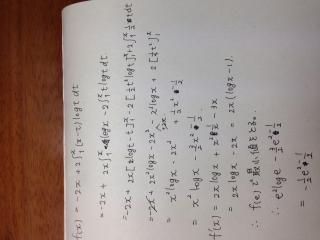 f(x) = -2x + 2∫₁ˣ (x-t) log t dt
= -2x + 2x∫₁ˣ log x - 2∫₁ˣ t log t dt
= -2x + 2x[t log t - t]₁ˣ - 2[½t² log t]₁ˣ + 2∫₁ˣ ½t dt
= -2x + 2x² log x - 2x² - x² log x + 2[¼t²]₁ˣ
+2x
= x² log x - 2x² + ½x² - ½
= x² log x - 3/2 x² - ½
f'(x) = 2x log x + x² · 1/x - 3x
= 2x log x - 2x = 2x(log x - 1).
∴ f(e) で最小値をとる。
∴ e² log e - 3/2 e² - ½
= -½e² - ½